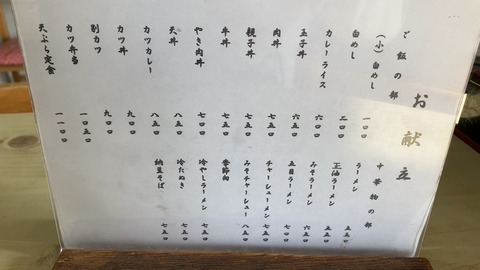 お献立
ご飯の部
(小)白めし 一〇〇
白めし 二〇〇
カレーライス 六〇〇
玉子丼 六五〇
肉丼 七五〇
親子丼 七五〇
牛丼 七五〇
やき肉丼 七〇〇
天丼 八五〇
カツカレー 八五〇
カツ丼 九〇〇
別カツ 九〇〇
カツ弁当 一〇五〇
天ぷら定食 一一〇〇
中華物の部
ラーメン 五五〇
正油ラーメン 五五〇
みそラーメン 六五〇
五目ラーメン 七〇〇
チャーシューメン 七五〇
みそチャーシュー 八五〇
季節向
冷やしラーメン 七〇〇
冷たぬき 七五〇
納豆そば 七五〇